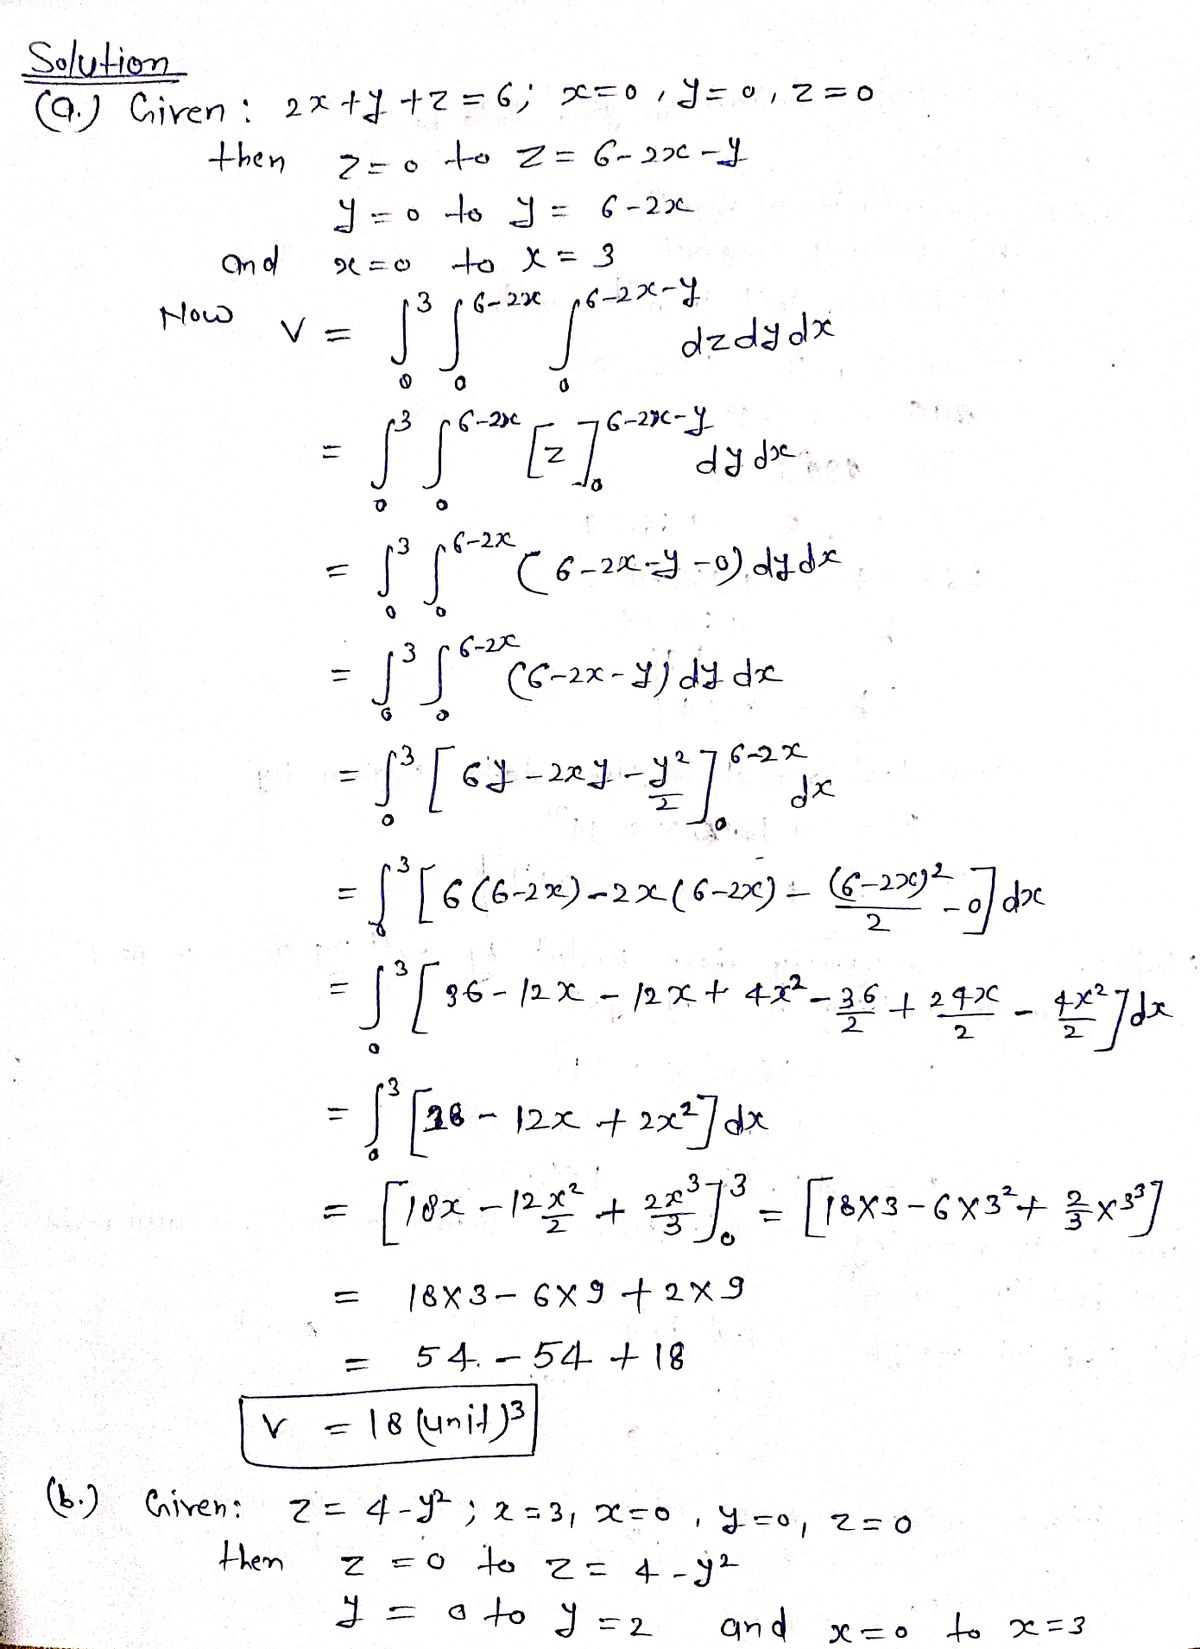 Solution
(a.) Given: 2x+y+z=6; x=0, y=0, z=0
then z=0 to z=6-2x-y
y=0 to y= 6-2x
and x=0 to x=3
Now V = ∫₀³ ∫₀^(6-2x) ∫₀^(6-2x-y) dzdydx
= ∫₀³ ∫₀^(6-2x) [z]₀^(6-2x-y) dy dx
= ∫₀³ ∫₀^(6-2x) (6-2x-y-0) dydx
= ∫₀³ ∫₀^(6-2x) (6-2x-y) dy dx
= ∫₀³ [6y-2xy-y²/2]₀^(6-2x) dx
= ∫₀³ [6(6-2x)-2x(6-2x)-(6-2x)²/2-0] dx
= ∫₀³ [36-12x-12x+4x²-36/2+24x/2-4x²/2] dx
= ∫₀³ [18-12x+2x²] dx
= [18x-12x²/2+2x³/3]₀³ = [18×3-6×3²+2/3×3³]
= 18×3-6×9+2×9
= 54-54+18
V = 18 (unit)³
(b.) Given: z=4-y²; x=3, x=0, y=0, z=0
then z=0 to z=4-y²
y=0 to y=2 and x=0 to x=3